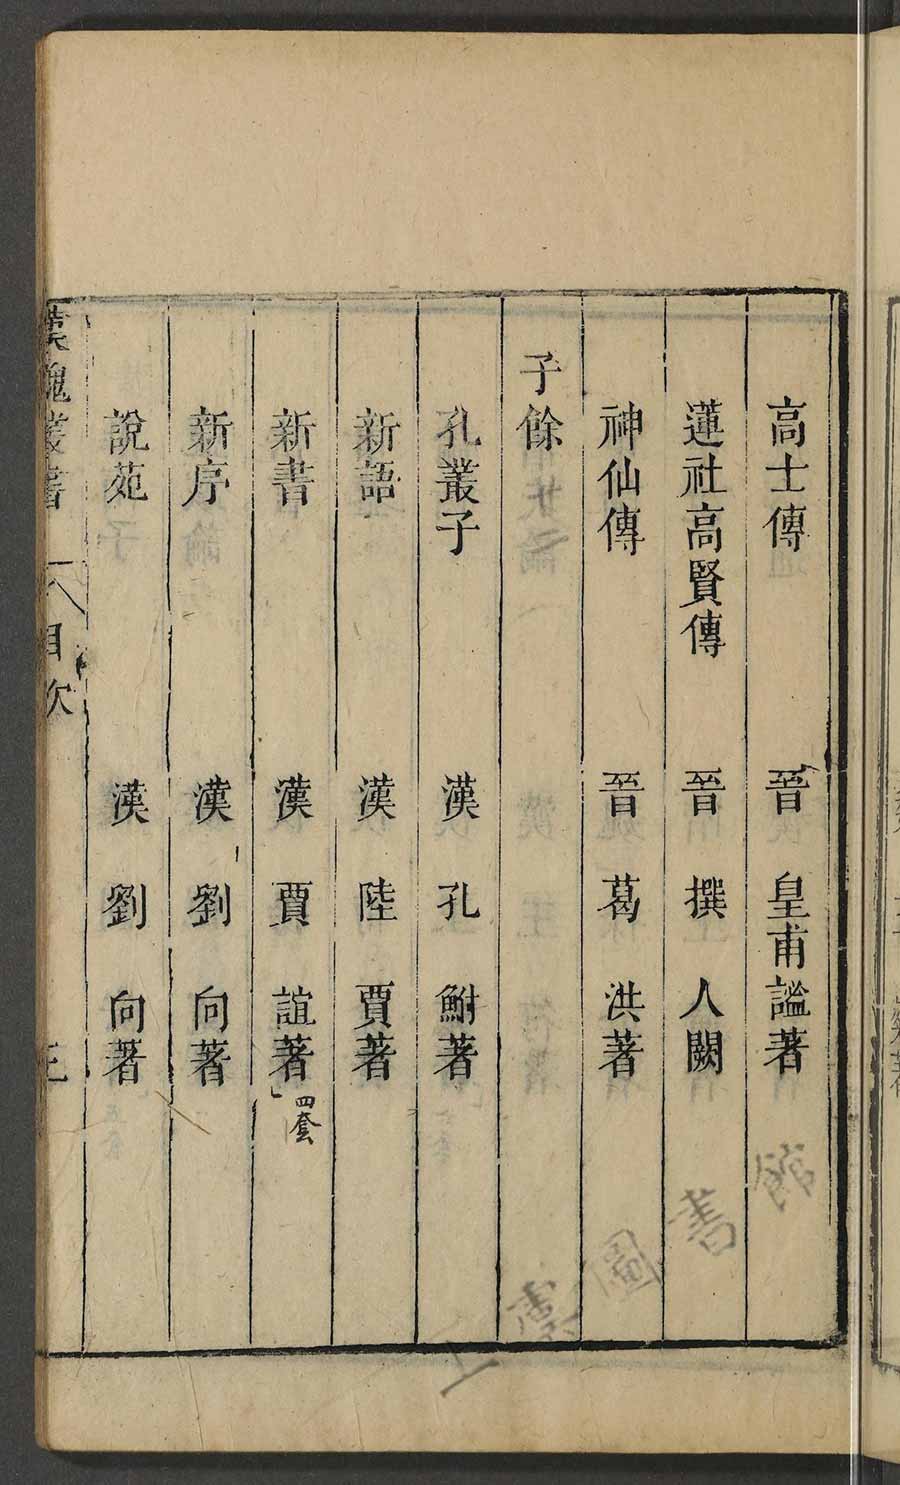 高士傳 晉 皇甫謐著
蓮社高賢傳 晉 撰人闕
神仙傳 晉 葛洪著
子餘
孔叢子 漢 孔鮒著
新語 漢 陸賈著
新書 漢 賈誼著 四套
新序 漢 劉向著
說苑 漢 劉向著
漢魏叢書 目次 三